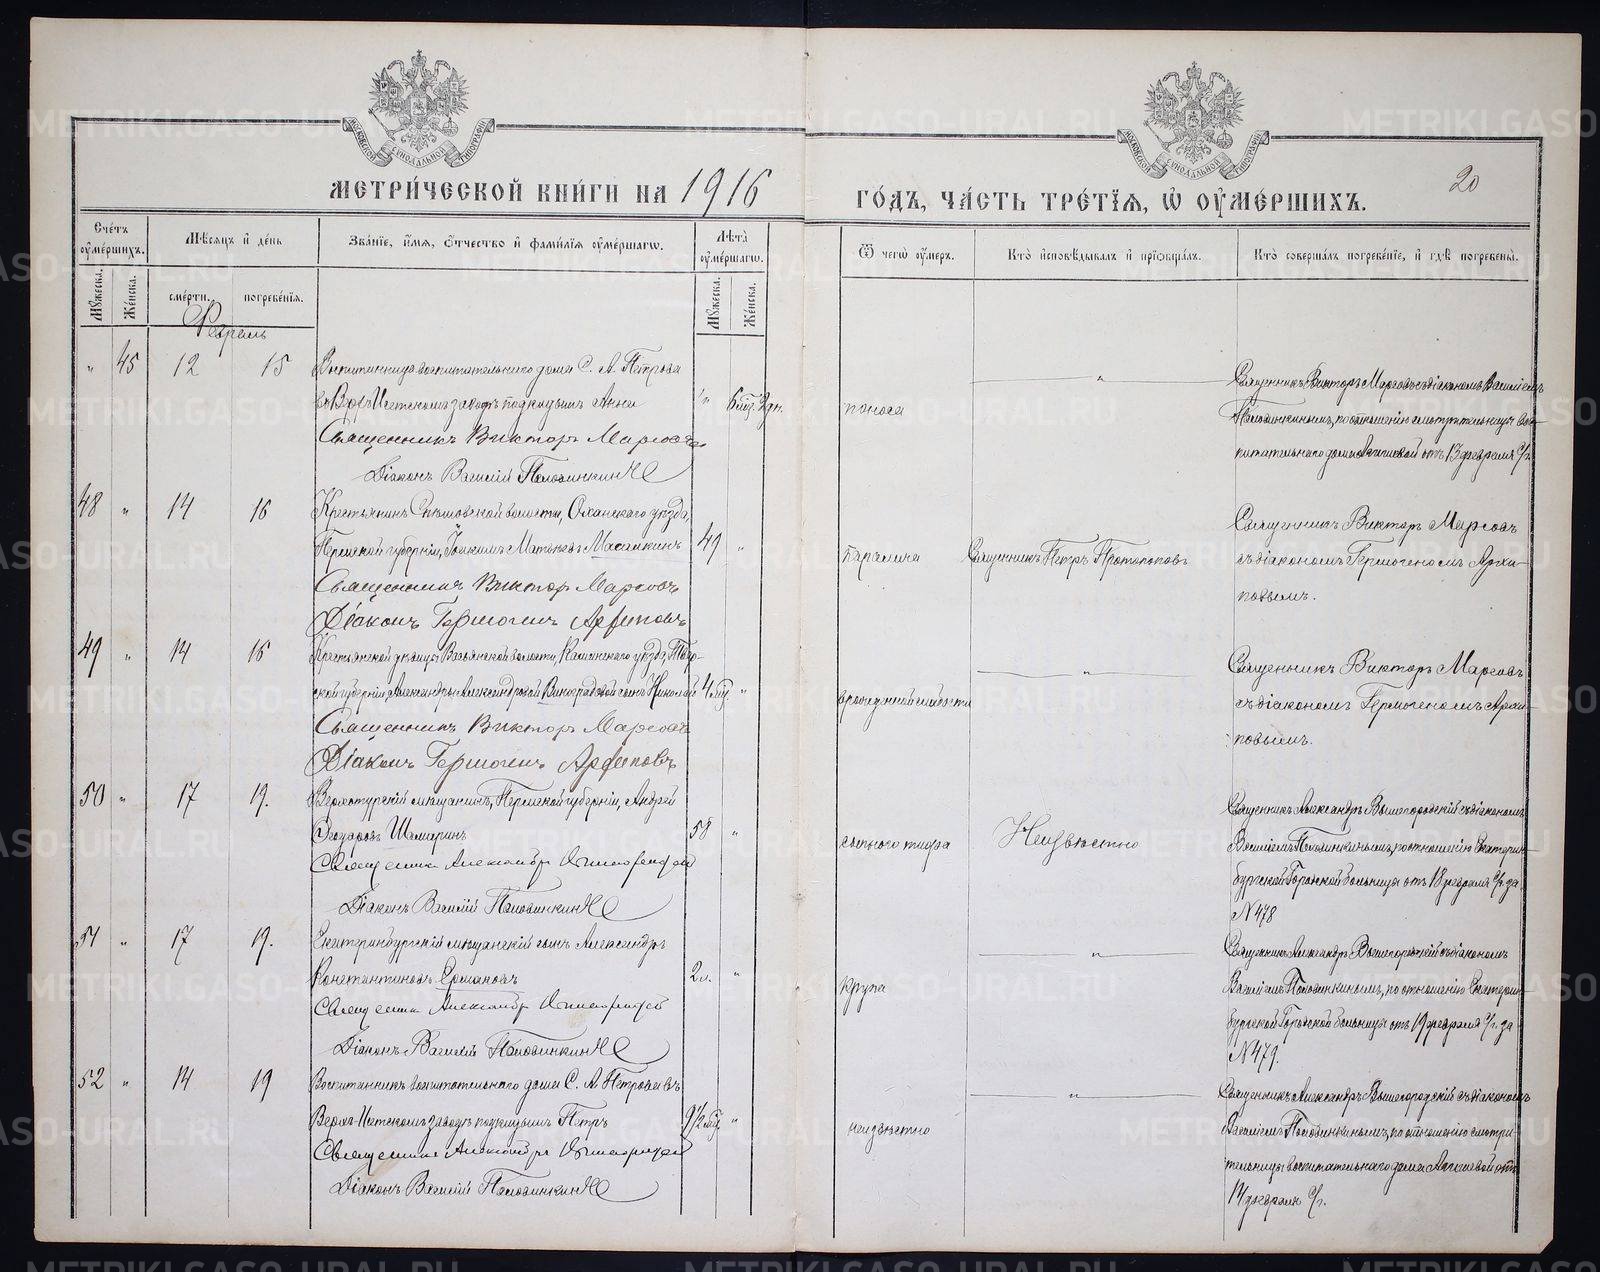 МОСКОВСКОЙ СѴНОДАЛЬНОЙ ТИПОГРАФІИ
МОСКОВСКОЙ СѴНОДАЛЬНОЙ ТИПОГРАФІИ
МЕТРИ́ЧЕСКОЙ КНИ́ГИ НА 1916
ГО́ДЪ, ЧА́СТЬ ТРЕ́ТЇѦ, Ѡ҆ ОУ҆МЕ́РШИХЪ.
20
Сче́тъ оу҆ме́ршихъ.
Мѣ́сѧцъ и҆ де́нь
Зва́нїе, и҆́мѧ, ѻ҆́тчество и҆ фами́лїѧ оу҆ме́ршагѡ.
Лѣ́та оу҆ме́ршагѡ.
Ѿ чегѡ̀ оу҆́меръ.
Кто̀ и҆сповѣ́дывалъ и҆ прїѻбща́лъ.
Кто̀ соверша́лъ погребе́нїе, и҆ гдѣ̀ погребены̀.
Мꙋ́жеска.
Же́нска.
сме́рти.
погребе́нїѧ.
Мꙋ́жеска.
Же́нска.
Февраль
" 45 12 15 Воспитанница воспитательнаго дома С. А. Петрова
въ Верхъ-Исетскомъ заводѣ подкидышъ Анна " 6 мѣс. 2 дн.
Священникъ Викторъ Марсовъ
Діаконъ Василій Половинкин
поноса
"
Священникъ Викторъ Марсовъ съ діакономъ Василіемъ
Половинкинымъ, по отношенію смотрительницы вос-
питательнаго дома отъ 13 февраля с/г.
48 " 14 16 Крестьянинъ волости, Оханскаго уѣзда,
Пермской губерніи, Іоакимъ Матѳеевъ Масалкинъ 49 "
Священникъ Викторъ Марсовъ
Діаконъ Гермогенъ Архиповъ
параличa
Священникъ Петръ Протопоповъ
Священникъ Викторъ Марсовъ
съ діакономъ Гермогеномъ Архи-
повымъ.
49 " 14 16 Крестьянской дѣвицы волости, Камышинскаго уѣзда,
ской губерніи Александры Александровой Виноградовой сынъ Николай 4 мѣс. "
Священникъ Викторъ Марсовъ
Діаконъ Гермогенъ Архиповъ
врожденной слабости
"
Священникъ Викторъ Марсовъ
съ діакономъ Гермогеномъ Архи-
повымъ.
50 " 17 19. Верхотурскій мѣщанинъ, Пермской губерніи, Андрей
Ѳеодоровъ Шамаринъ 58 "
Священникъ Александръ
Діаконъ Василій Половинкин
сыпного тифа
Неизвѣстно
Священникъ Александръ Вышегородскій съ діакономъ
Василіемъ Половинкинымъ, по отношенію Екатерин-
бургской Городской больницы отъ 18 февраля с/г. за
№ 478
51 " 17 19. Екатеринбургскій мѣщанскій сынъ Александръ
Константиновъ Ермаковъ 2 л. "
Священникъ Александръ
Діаконъ Василій Половинкин
крупа
"
Священникъ Александръ Вышегородскій съ діакономъ
Василіемъ Половинкинымъ, по отношенію Екатерин-
бургской Городской больницы отъ 19 февраля с/г. за
№ 479.
52 " 14 19 Воспитанникъ воспитательнаго дома С. А. Петрова въ
Верхъ-Исетскомъ заводѣ подкидышъ Петръ 9 1/2 мѣс. "
Священникъ Александръ
Діаконъ Василій Половинкин
неизвѣстно
"
Священникъ Александръ Вышегородскій съ діакономъ
Василіемъ Половинкинымъ, по отношенію смотри-
тельницы воспитательнаго дома отъ
14 февраля с/г.
METRIKI.GASO-URAL.RU